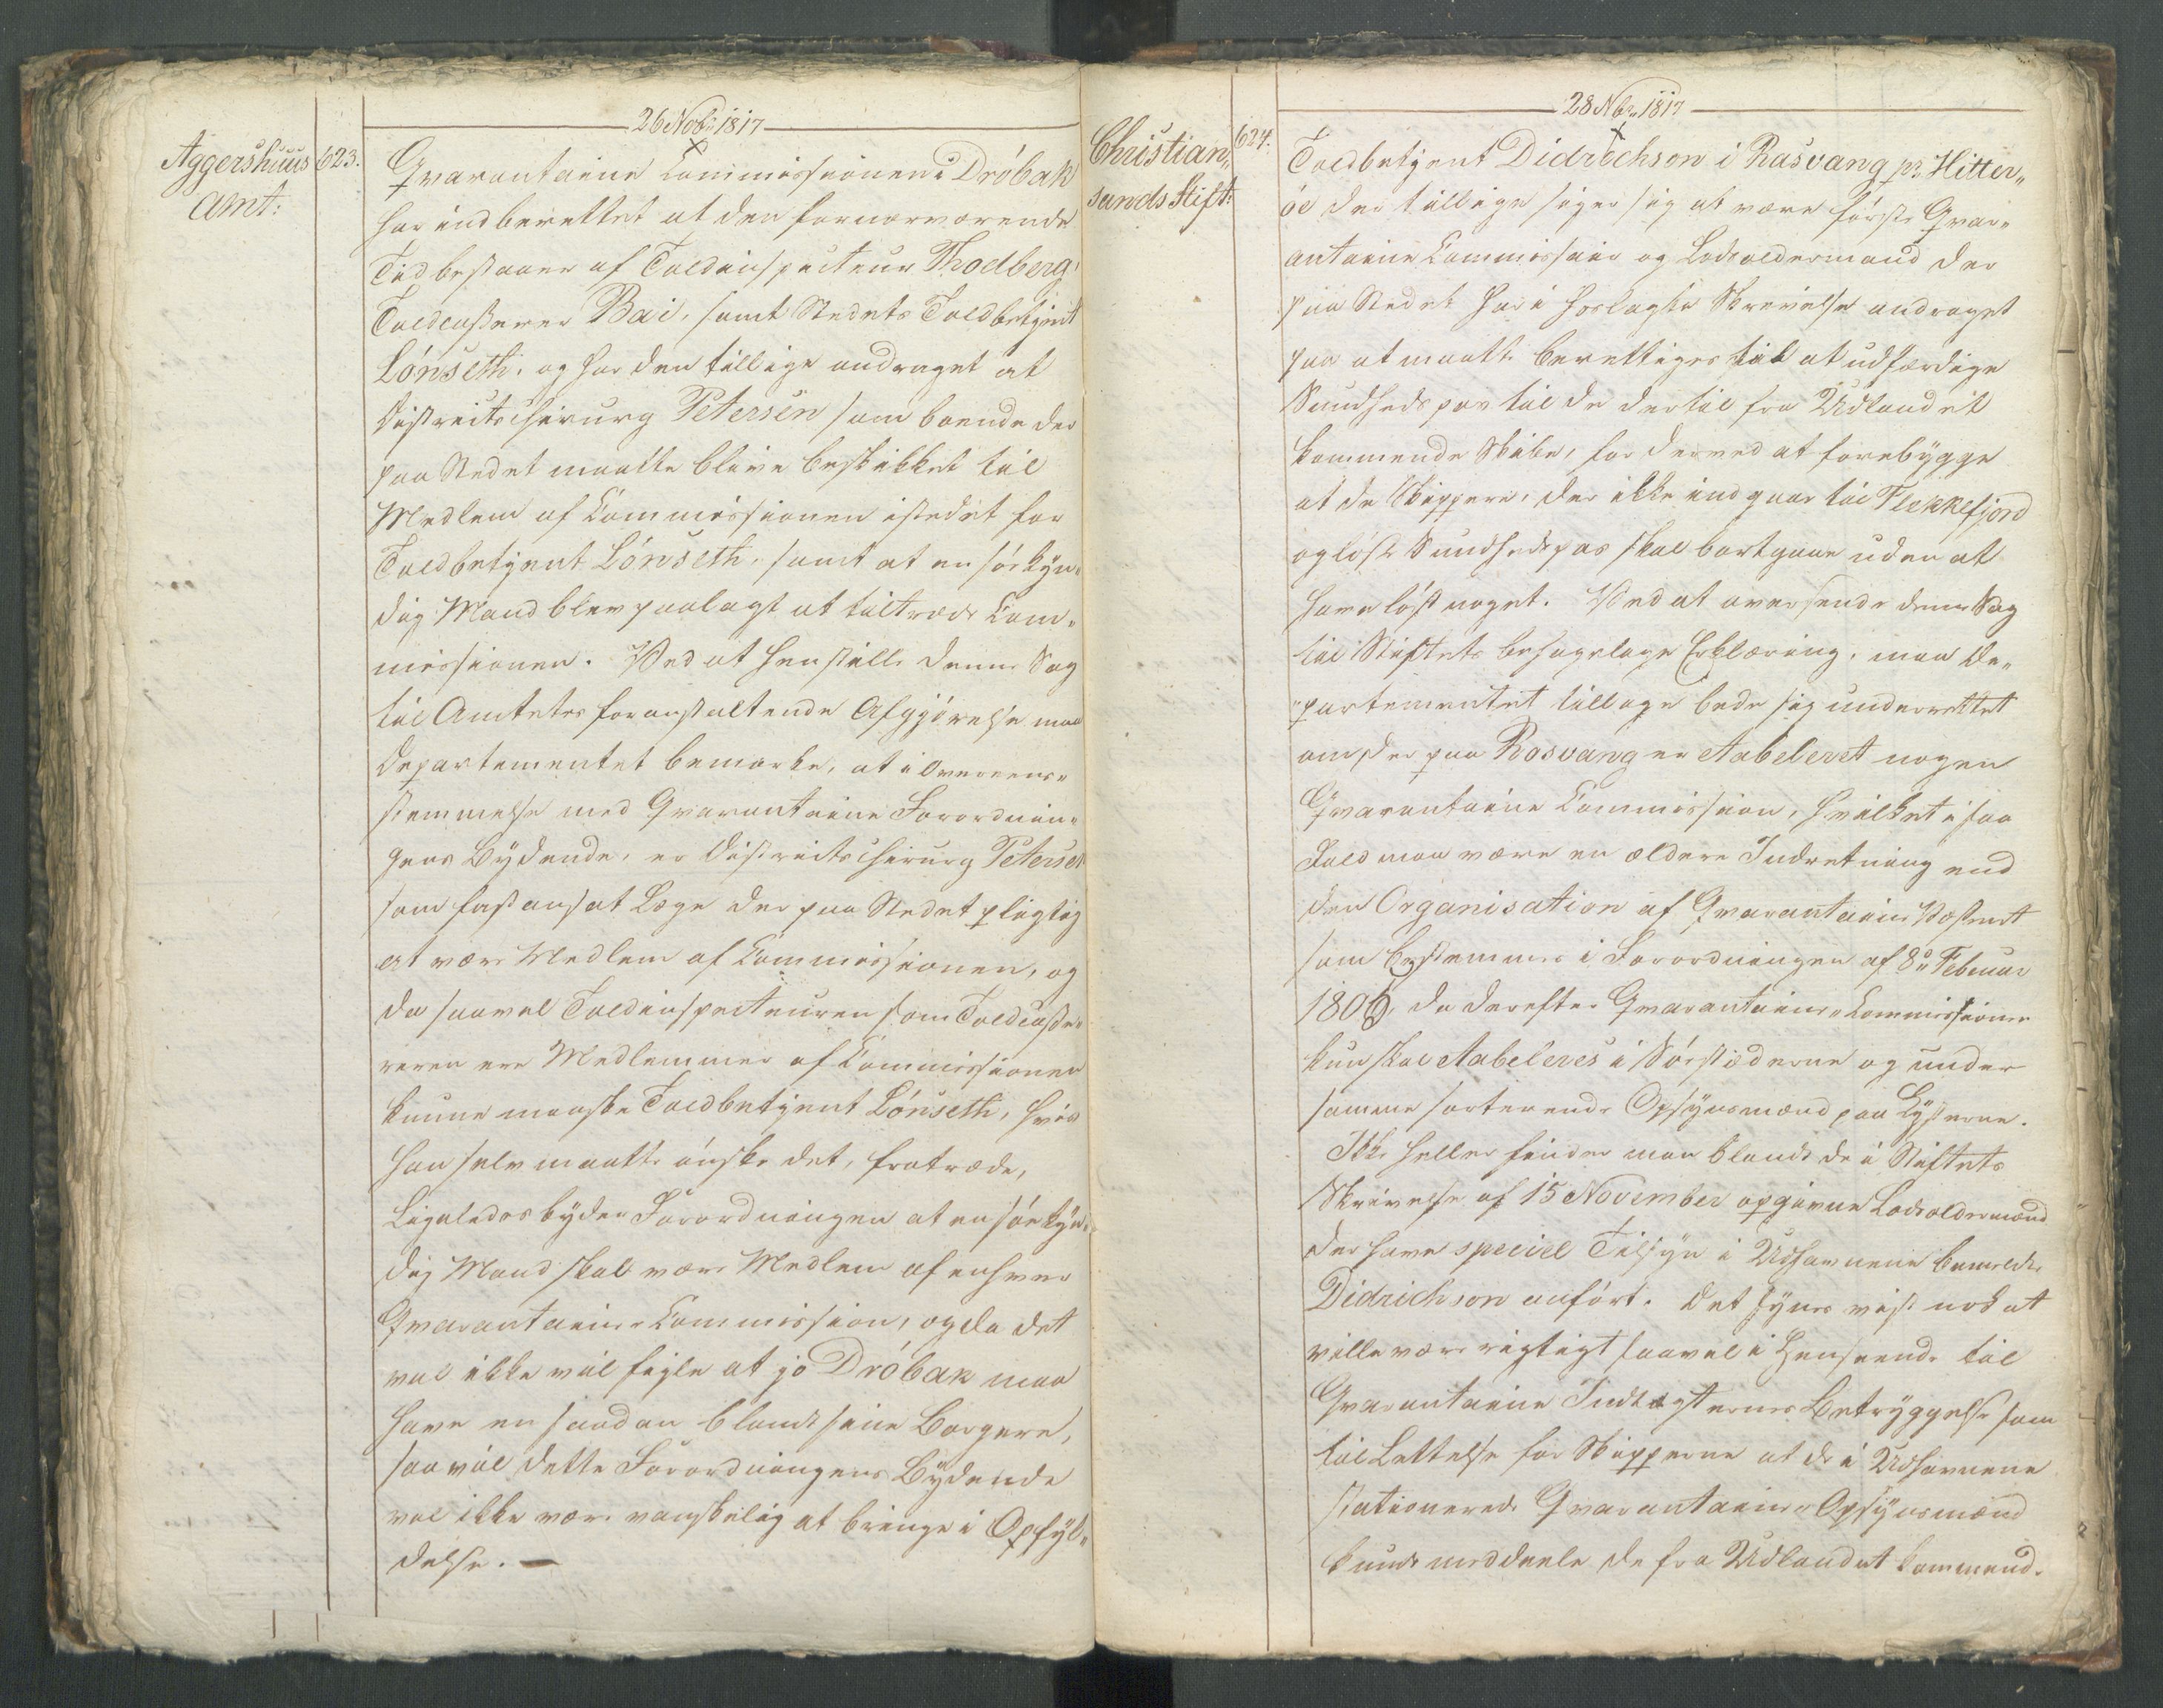 26 Novbr 1817
Aggershuus
Amt:
623.
Qvarantaine Commissionen i Dröbak
har indberettet at den for nærværende
Tid bestaaer af Toldinspecteur Thodberg,
Toldcasserer Bai, samt Stedets Toldbetjent
Lönseth, og har den tillige andraget at
Districtschirurg Petersen som boende der
paa Stedet maatte blive beskikket til
Medlem af Commissionen istedet for
Toldbetjent Lönseth, samt at en söekyn„
dig Mand blev paalagt at tiltræde Com„
missionen. Ved at henstille denne Sag
til Amtets foranstaltende Afgjörelse maa
Departementet bemærke, at i Overeens„
stemmelse med Qvarantaine Forordnin„
gens Bydende, er Districtschirurg Petersen
som fast ansat Læge der paa Stedet pligtig
at være Medlem af Commissionen, og
da saavel Toldinspecteuren som Toldcasse„
reren ere Medlemmer af Commissionen
kunne maaske Toldbetjent Lönseth, hvis
han selv maatte önske det, fratræde,
Ligeledes byder Forordningen at en söekyn„
dig Mand skal være Medlem af enhver
Qvarantaine Commission, og da det
vel ikke vil feyle at jo Dröbak maa
have en saadan blandt sine Borgere,
saa vil dette Forordningens Bydende
vel ikke være vanskelig at bringe i Opfyl„
delse. —
28 Nbr 1817
Christian„
sands Stift:
624.
Toldbetjent Didrichson i Rasvang pr. Hitter„
öe der tillige siger sig at være förste Qvar„
antaine Commissair og Lodsoldermand der
paa Stedet har i hoslagte Skrivelse andraget
paa at maatte berettiges til at udfærdige
Sundhedspas til de dertil fra Udlandet
kommende Skibe, for derved at forebygge
at de Skippere, der ikke indgaar til Flekkefjord
og löse Sundhedspas skal bortgaae uden at
have löst noget. Ved at oversende denne Sag
til Stiftets behagelige Erklæring, maa De„
„partementet tillige bede sig underrettet
om der paa Rosvang er etabeleret nogen
Qvarantaine Commission, hvilket i saa
Fald maa være en ældere Indretning end
den Organisation af Qvarantaine Væsenet
som bestemmes i Forordningen af 8de Februar
1806, da derefter Qvarantaine„Commissioner
kun skal etabeleres i Söestæderne og under
samme sorterende Opsynsmænd paa Kysterne.
Ikke heller finder man blandt de i Stiftets
Skrivelse af 15 November opgivne Lodsoldermænd
der have speciel Tilsyn i Udhavnene bemeldte
Didrichson anfört. Det synes vist nok at
ville være rigtigt saavel i Henseende til
Qvarantaine Indtægternes Betryggelse som
til Lettelse for Skipperne at de i Udhavnene
stationerede Qvarantaine Opsynsmænd
kunde meddeele de fra Udlandet kommende